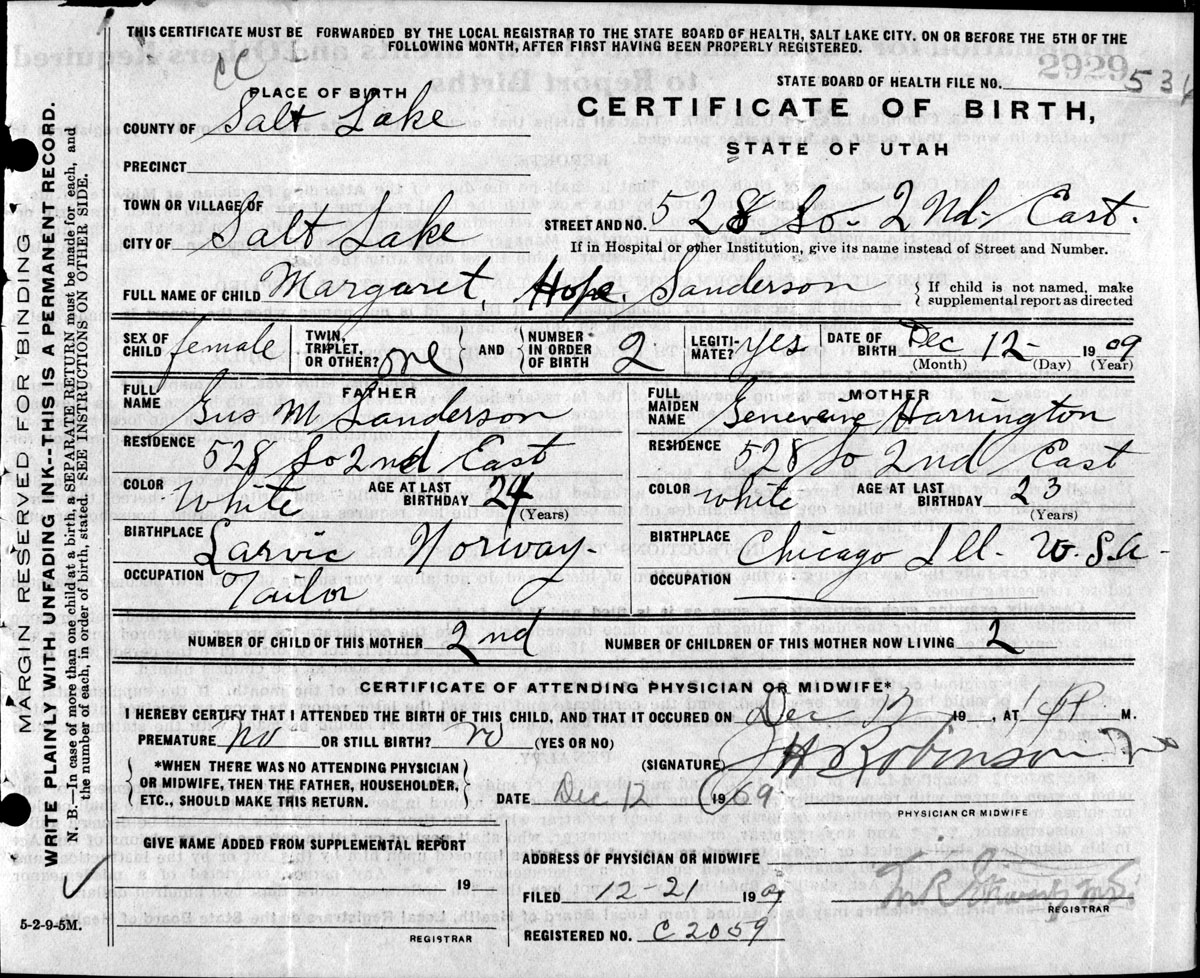 THIS CERTIFICATE MUST BE FORWARDED BY THE LOCAL REGISTRAR TO THE STATE BOARD OF HEALTH, SALT LAKE CITY, ON OR BEFORE THE 5TH OF THE
FOLLOWING MONTH, AFTER FIRST HAVING BEEN PROPERLY REGISTERED.
2929
STATE BOARD OF HEALTH FILE NO. 531
PLACE OF BIRTH
CERTIFICATE OF BIRTH,
COUNTY OF Salt Lake
STATE OF UTAH
PRECINCT
TOWN OR VILLAGE OF
STREET AND NO. 528 So- 2nd- East.
CITY OF Salt Lake
If in Hospital or other Institution, give its name instead of Street and Number.
FULL NAME OF CHILD Margaret, Hope. Sanderson { If child is not named, make
supplemental report as directed
SEX OF CHILD female TWIN, TRIPLET, OR OTHER? one } AND { NUMBER IN ORDER OF BIRTH 2 LEGITIMATE? yes DATE OF BIRTH Dec 12- 1909
(Month) (Day) (Year)
FATHER
FULL NAME Gus M Sanderson
RESIDENCE 528 So 2nd East
COLOR White AGE AT LAST BIRTHDAY 24 (Years)
BIRTHPLACE Larvic Norway-
OCCUPATION Tailor
MOTHER
FULL MAIDEN NAME Genevieve Harrington
RESIDENCE 528 So 2nd East
COLOR White AGE AT LAST BIRTHDAY 23 (Years)
BIRTHPLACE Chicago Ill- U.S.A-
OCCUPATION
NUMBER OF CHILD OF THIS MOTHER 2nd NUMBER OF CHILDREN OF THIS MOTHER NOW LIVING 2
CERTIFICATE OF ATTENDING PHYSICIAN OR MIDWIFE*
I HEREBY CERTIFY THAT I ATTENDED THE BIRTH OF THIS CHILD, AND THAT IT OCCURED ON Dec 12 19 , AT 1 P M.
PREMATURE no OR STILL BIRTH? no (YES OR NO)
(SIGNATURE) J H Robinson
{ *WHEN THERE WAS NO ATTENDING PHYSICIAN
OR MIDWIFE, THEN THE FATHER, HOUSEHOLDER,
ETC., SHOULD MAKE THIS RETURN. }
DATE Dec 12 1909
PHYSICIAN OR MIDWIFE
GIVE NAME ADDED FROM SUPPLEMENTAL REPORT
19
REGISTRAR
ADDRESS OF PHYSICIAN OR MIDWIFE
FILED 12-21 1909
REGISTRAR
REGISTERED NO. C 2059
5-2-9-5M.
MARGIN RESERVED FOR BINDING
WRITE PLAINLY WITH UNFADING INK--THIS IS A PERMANENT RECORD.
N. B.—In case of more than one child at a birth, a SEPARATE RETURN must be made for each, and
the number of each, in order of birth, stated. SEE INSTRUCTIONS ON OTHER SIDE.